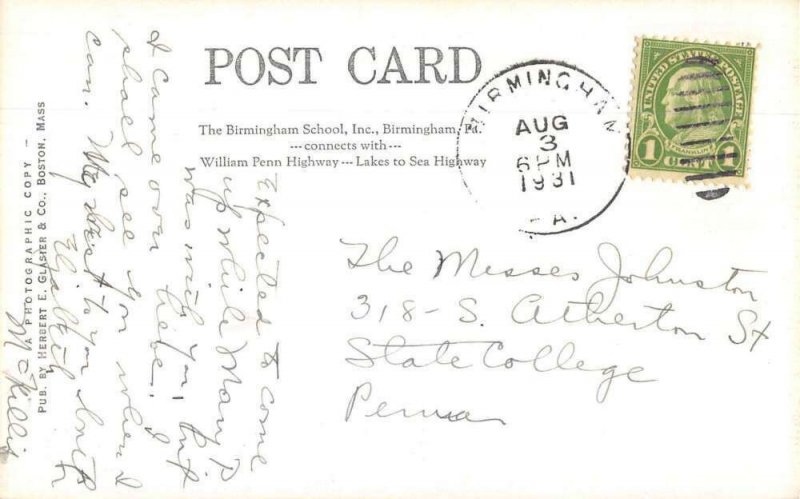 POST CARD
The Birmingham School, Inc., Birmingham, Pa.
---connects with---
William Penn Highway --- Lakes to Sea Highway
BIRMINGHAM
AUG
3
6PM
1931
PA.
UNITED STATES POSTAGE
FRANKLIN
1 CENT 1
The Misses Johnston
318-S. Atherton St
State College
Penna
Expected to come
up while Mary P
was with you, but
I came over here. I
shall see you when I
can. My best to you both
Elizabeth
McKillis
A PHOTOGRAPHIC COPY -
PUB. BY HERBERT E. GLASIER & CO., BOSTON, MASS